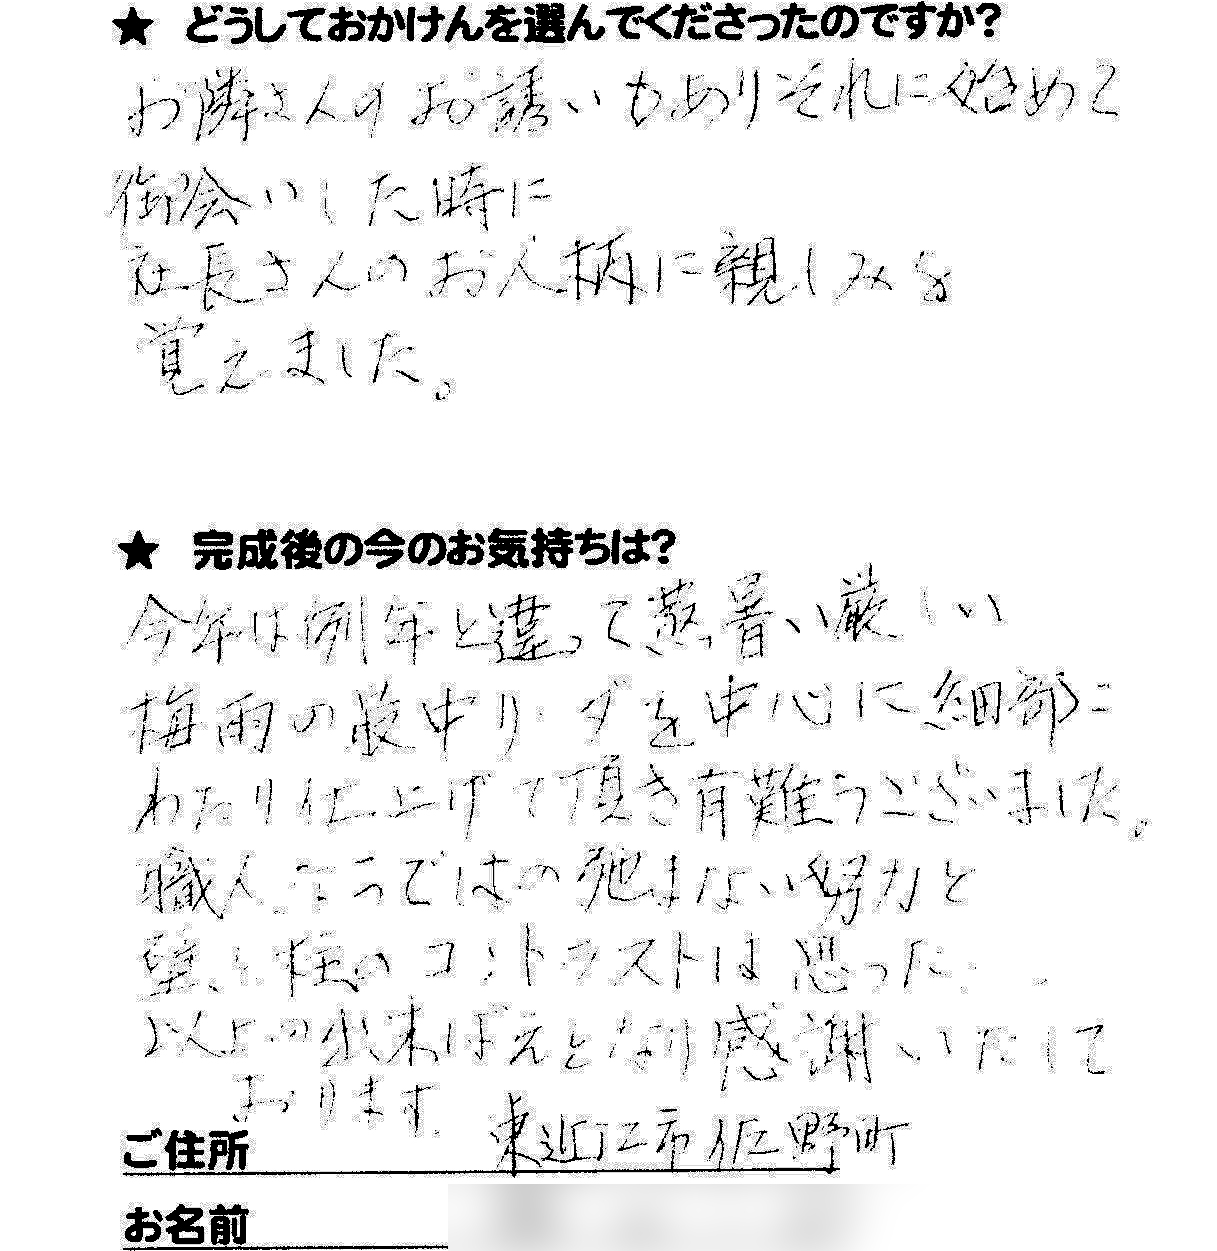 ★ どうしておかけんを選んでくださったのですか?
お隣さんのお誘いもありそれに始めて
御会いした時に
社長さんのお人柄に親しみを
覚えました。
★ 完成後の今のお気持ちは?
今年は例年と違って蒸暑い厳しい
梅雨の最中リーダを中心に細部に
わたり仕上げて頂き有難うございました。
職人ならではの弛まない努力と
壁と柱のコントラストは思った
以上の出来ばえとなり感謝いたして
おります.
ご住所 東近江市佐野町
お名前